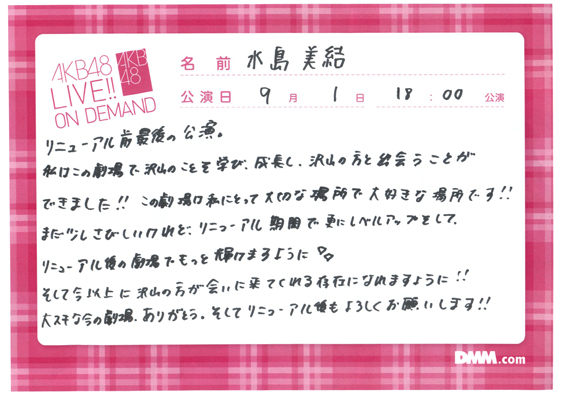 AKB48
LIVE!!
ON DEMAND
AKB
48
名前 水島美結
公演日 9月 1日 18:00 公演
リニューアル前最後の公演。
私はこの劇場で沢山のことを学び、成長し、沢山の方と出会うことが
できました!! この劇場は私にとって大切な場所で大好きな場所です!!
まだ少しさびしいけれど、リニューアル期間で更にレベルアップをして、
リニューアル後の劇場でもっと輝けますように♡♡
そして今以上に沢山の方が会いに来てくれる存在になれますように!!
大スキな今の劇場、ありがとう。そしてリニューアル後もよろしくお願いします!!
DMM.com